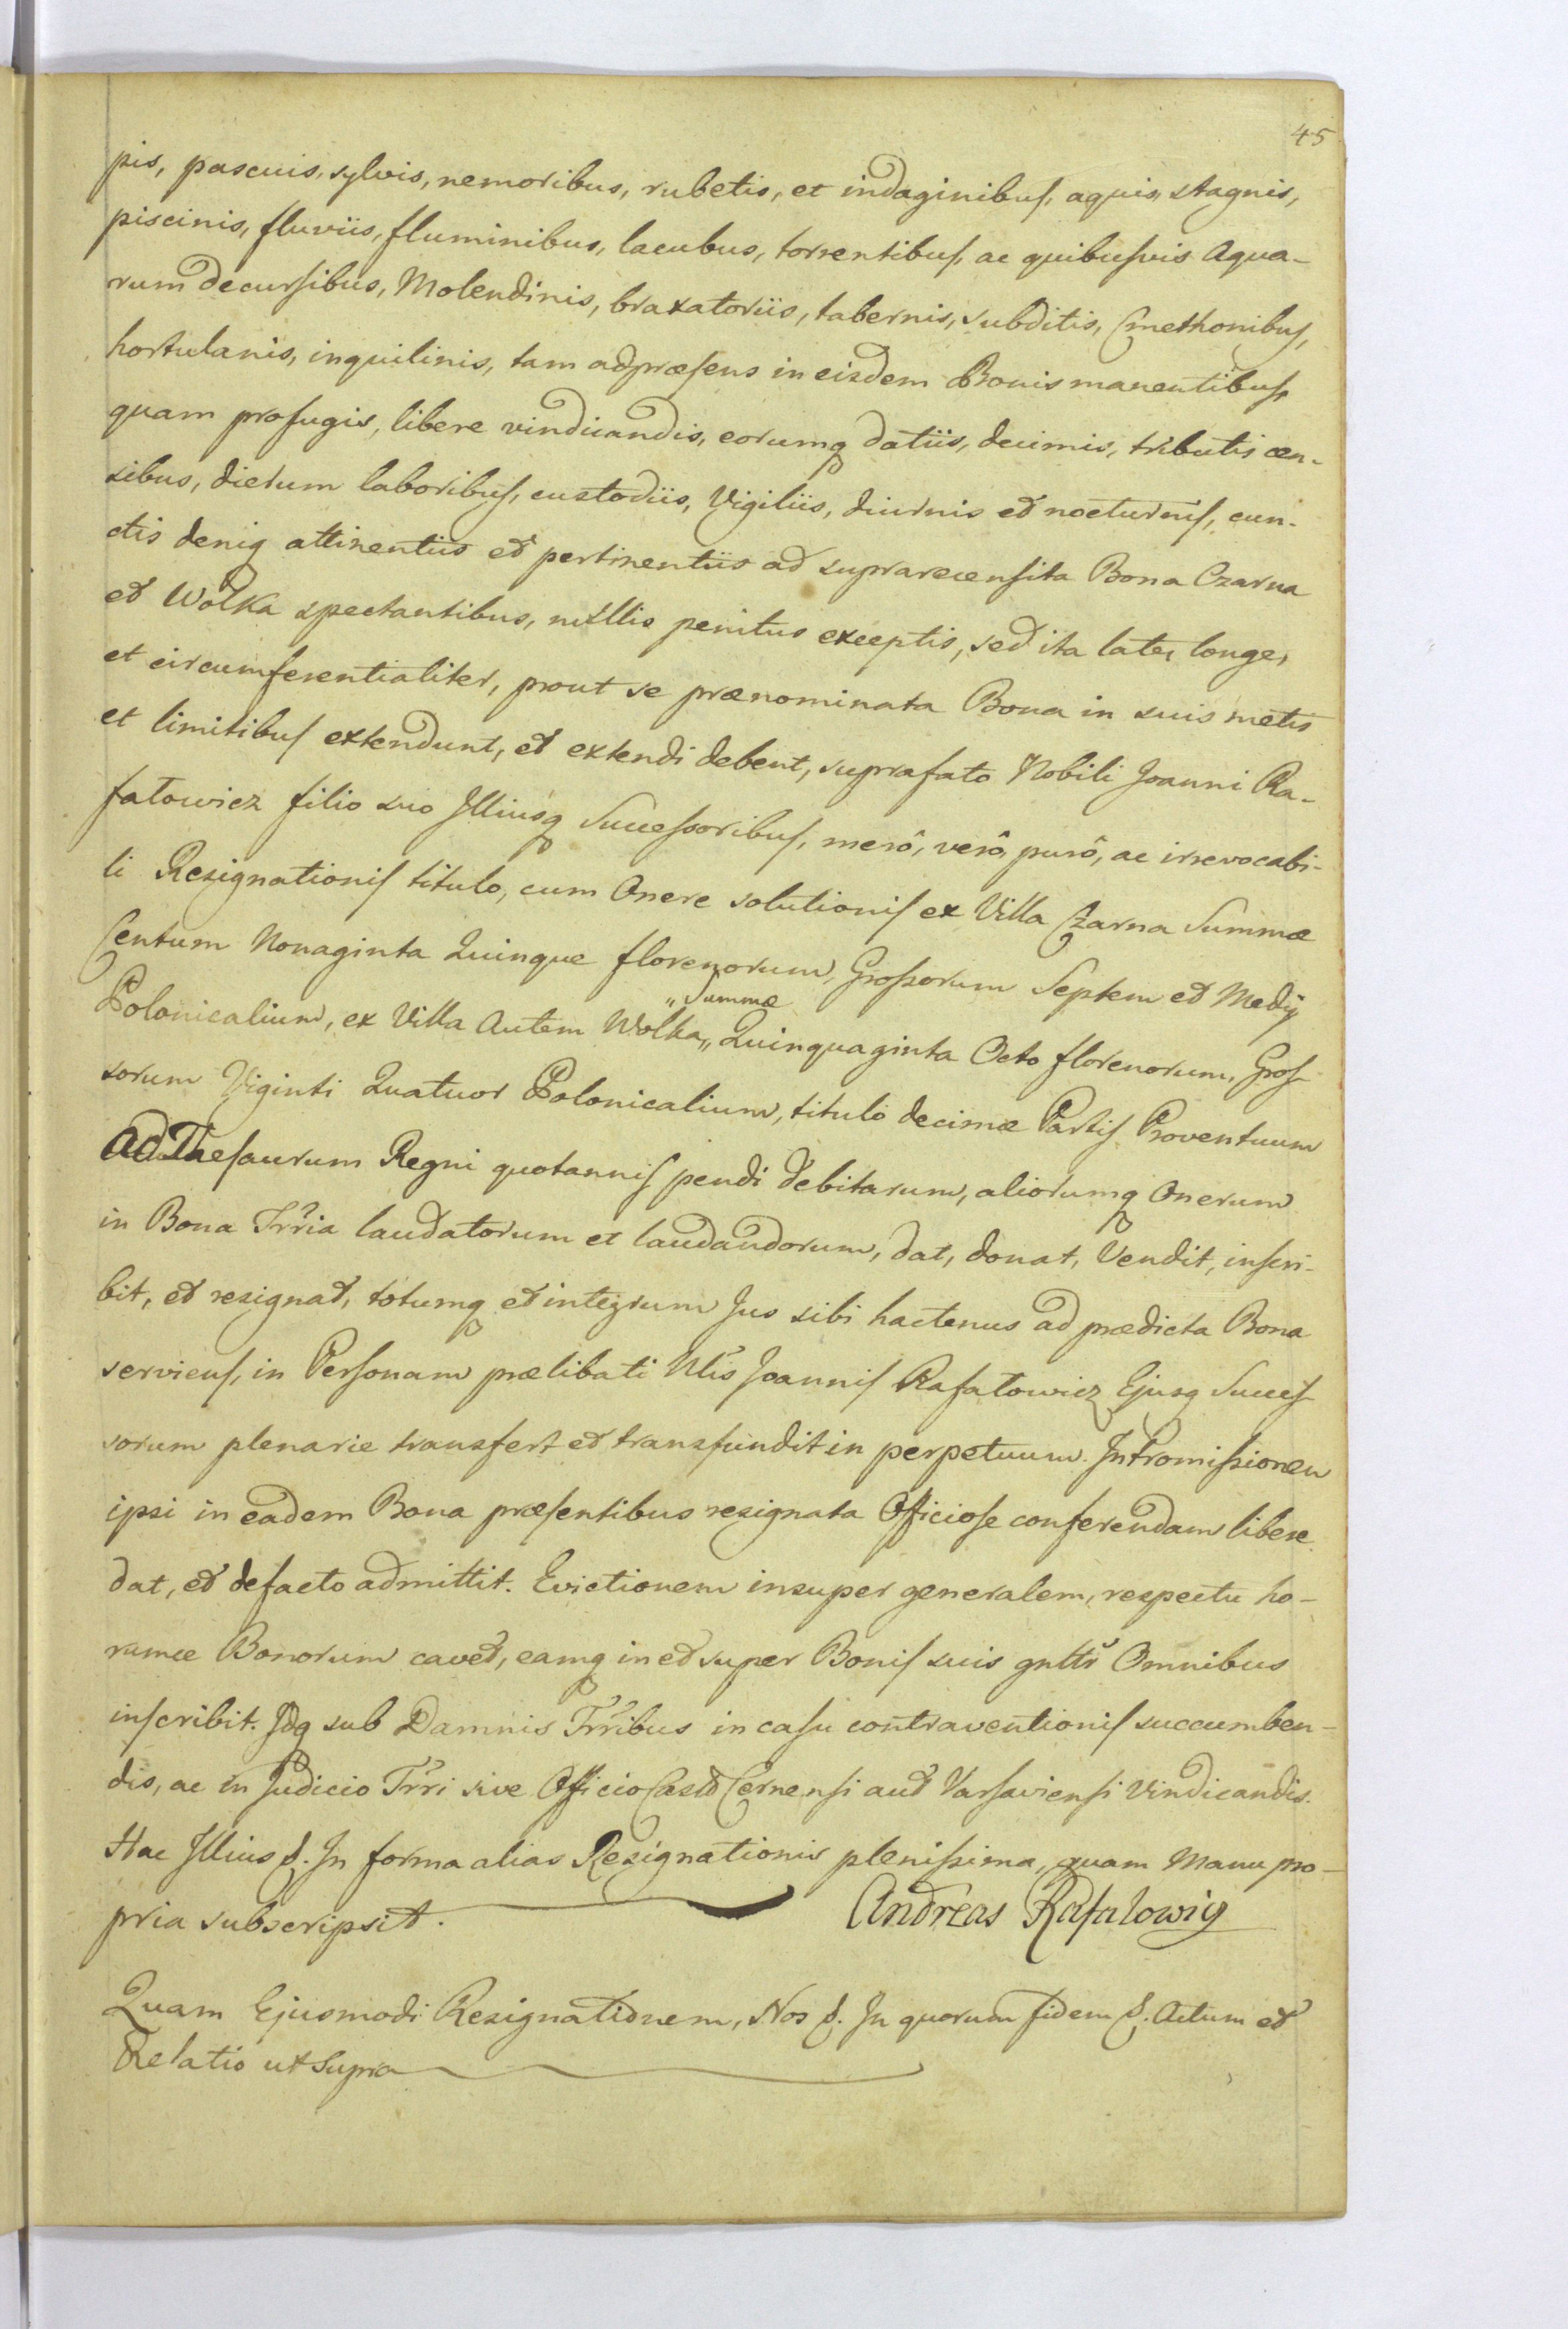 45
pis, pascuis, sylvis, nemoribus, rubetis, et indaginibus, aquis, stagnis,
piscinis, fluviis, fluminibus, lacubus, torrentibus, ac quibusvis Aqua-
rum decursibus, Molendinis, braxatoriis, tabernis, subditis, Cmethonibus,
hortulanis, inquilinis, tam adpræsens in eisdem Bonis manentibus,
quam profugis, libere vindicandis, eorumq datiis, decimis, tributis cen-
sibus, dierum laboribus, custodiis, Vigiliis, diurnis et nocturnis, cun-
ctis deniq attinentiis et pertinentiis ad suprarecensita Bona Czarna
et Wolka spectantibus, nullis penitus exceptis, sed ita late, longe,
et circumferentialiter, prout se prænominata Bona in suis metis
et limitibus extendunt, et extendi debent, suprafato Nobili Joanni Ra-
fałowicz filio suo Illiusq Successoribus, merô, verô, purô, ac irrevocabi-
li Resignationis titulo, cum Onere solutionis ex Villa Czarna Summæ
Centum Nonaginta Quinque florenorum, Grossorum Septem et Medij
Polonicalium, ex Villa Autem Wolka „Summæ„ Quinquaginta Octo florenorum, Gros-
sorum Viginti Quatuor Polonicalium, titulo decimæ Partis Proventuum
Ad Thesaurum Regni quotannis pendi debitarum, aliorumq Onerum
in Bona Trria laudatorum et laudandorum, dat, donat, Vendit, inscri-
bit, et resignat, totumq et integrum Jus sibi hactenus ad prædicta Bona
serviens, in Personam prælibati Nlis Joannis Rafałowicz Ejusq Succes-
sorum plenarie transfert et transfundit in perpetuum. Intromissionem
ipsi in eadem Bona præsentibus resignata Officiose conferendam libere
dat, et defacto admittit. Evictionem insuper generalem, respectu ho-
rumce Bonorum cavet, eamq in et super Bonis suis gnltr Omnibus
inscribit. Idq sub Damnis Trribus in casu contraventionis succumben-
dis, ac in Judicio Trri sive Officio Castr Cernensi aut Varsaviensi Vindicandis.
Hac Illius &. In forma alias Resignationis plenissima, quam Manu pro-
pria subscripsit. Andreas Rafalowicz
Quam Ejusmodi Resignationem, Nos &. In quorum fidem &. Actum et
Relatio ut Supra